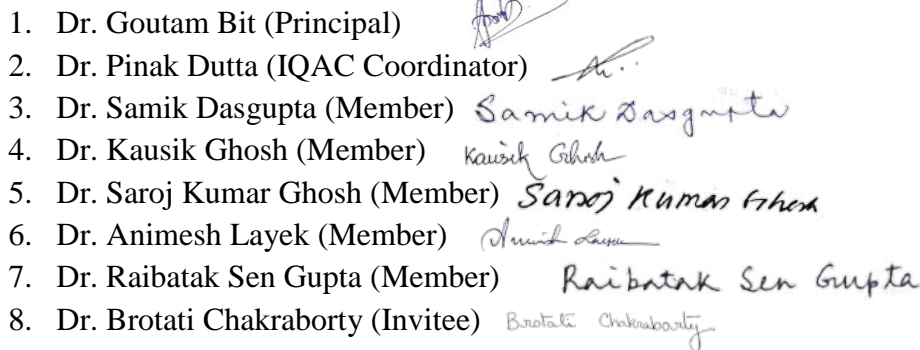 1. Dr. Goutam Bit (Principal)
2. Dr. Pinak Dutta (IQAC Coordinator)
3. Dr. Samik Dasgupta (Member) Samik Dasgupta
4. Dr. Kausik Ghosh (Member) Kausik Ghosh
5. Dr. Saroj Kumar Ghosh (Member) Saroj Kumar Ghosh
6. Dr. Animesh Layek (Member)
7. Dr. Raibatak Sen Gupta (Member) Raibatak Sen Gupta
8. Dr. Brotati Chakraborty (Invitee) Brotati Chakraborty